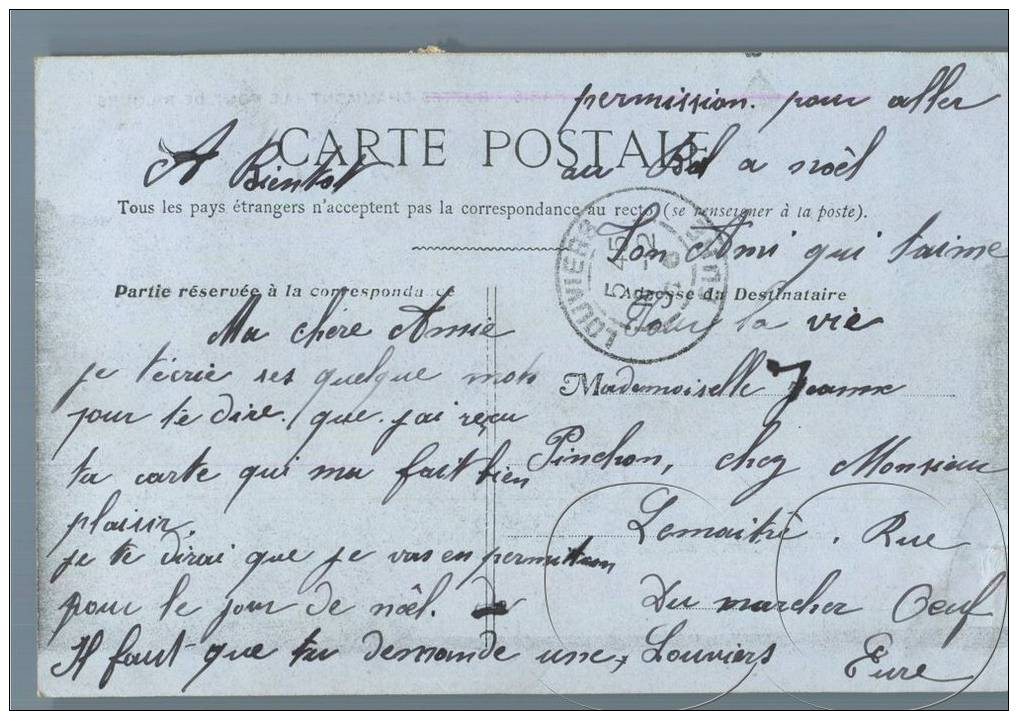 permission. pour aller
CARTE POSTALE
A Bientot
au Bal a noèl
Tous les pays étrangers n'acceptent pas la correspondance au recto (se renseigner à la poste).
Ton Ami qui taime
Pour la vie
LOUVIERS
EURE
Partie réservée à la correspondance
Adresse du Destinataire
Ma chère Amie
je técrie ses quelque mots
pour te dire. que. j'ai reçu
ta carte qui ma fait bien
plaisir.
je te dirai que je vas en permition
pour le jour de noêl.
Il faut que tu demande une
Mademoiselle Jeanne
Pinchon, chez Monsieur
Lemaitre. Rue
Du marcher Oeuf
Louviers
Eure